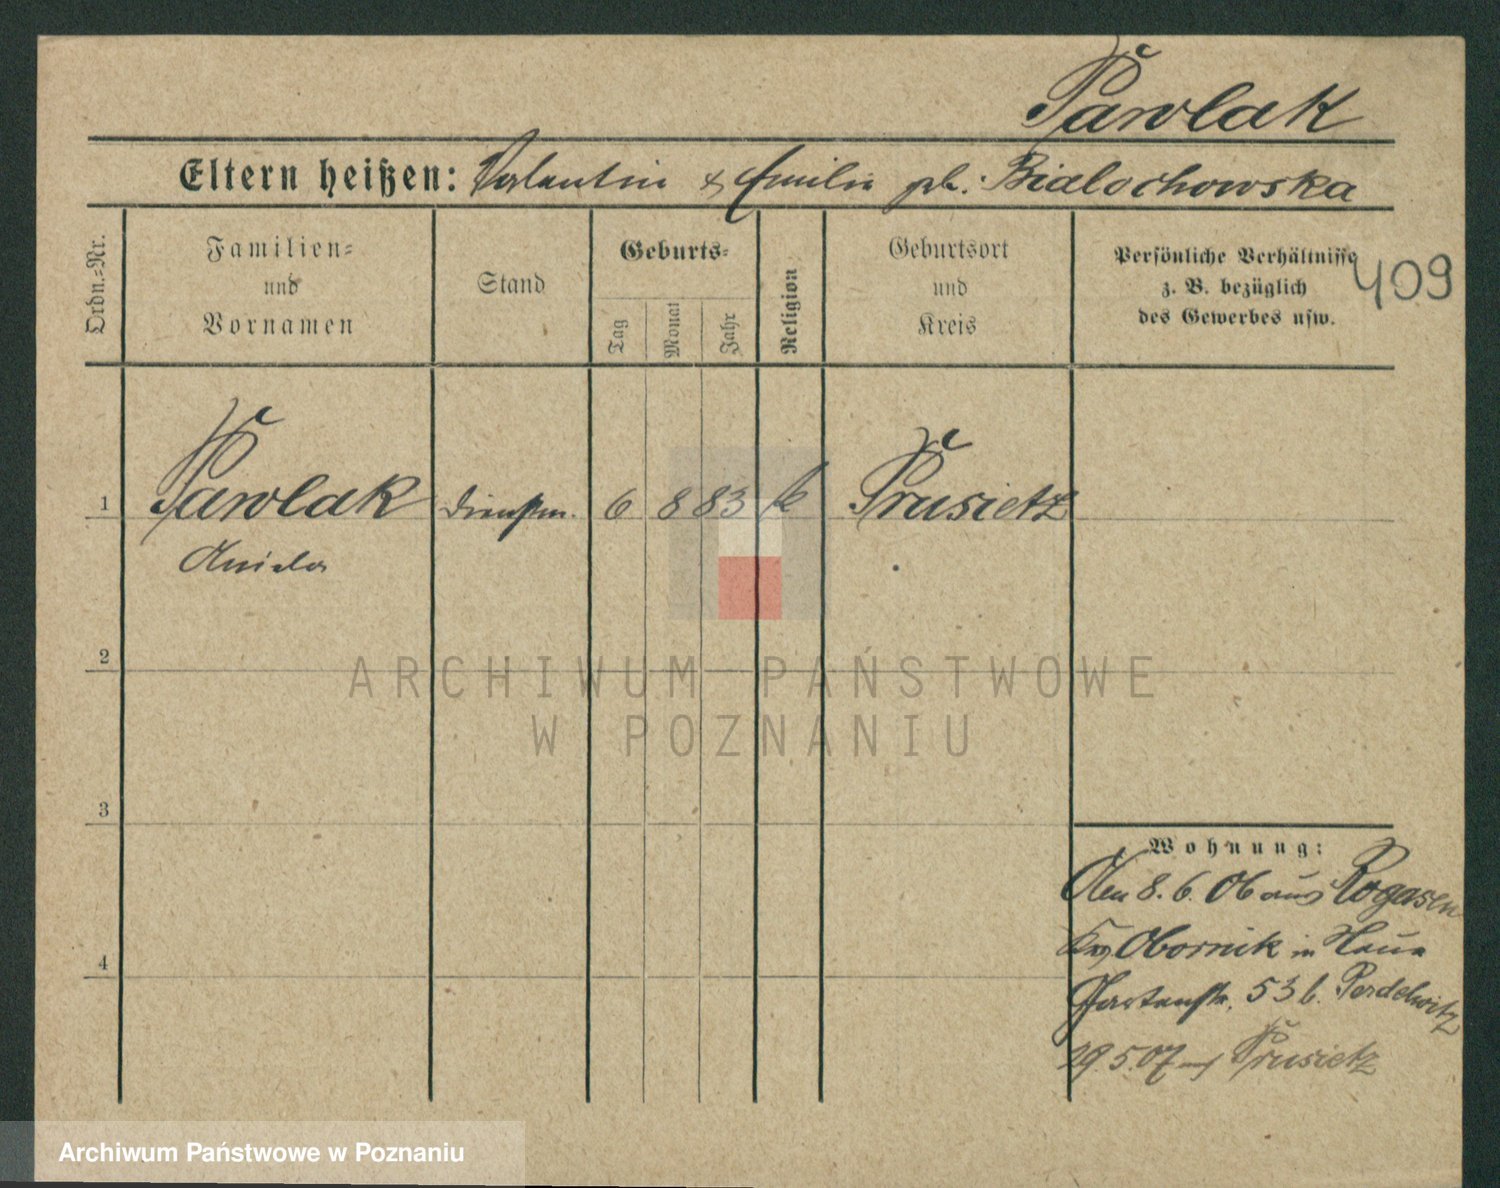 Pawlak
Eltern heißen: Valentin & Emilie geb. Bialochowska
Ordn.=Nr.
Familien=
und
Vornamen
Stand
Geburts=
Tag
Monat
Jahr
Religion
Geburtsort
und
Kreis
Persönliche Verhältnisse
z. B. bezüglich
des Gewerbes usw.
409
1 Pawlak Dienstm. 6 8 83 k Prusietz
Aniela
2
ARCHIWUM PAŃSTWOWE
W POZNANIU
3
Wohnung:
Den 8. 6. 06 aus Rogasen
Obornik in
Gartenstr. 53 b. Perdelwitz
29.5.07 Prusietz
4
Archiwum Państwowe w Poznaniu